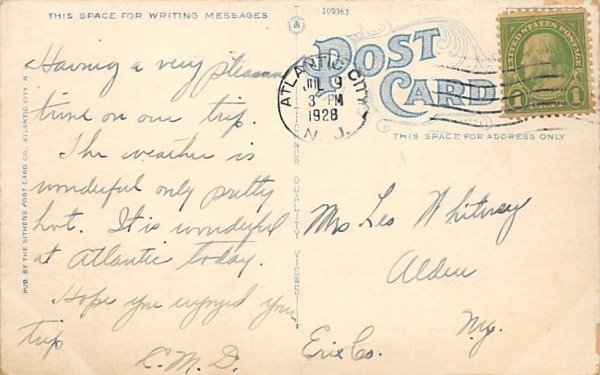 THIS SPACE FOR WRITING MESSAGES
109363
POST
CARD
THIS SPACE FOR ADDRESS ONLY
UNITED STATES POSTAGE
1 1
ATLANTIC CITY
JUL 9
3 PM
1928
N. J.
Having a very pleasant
time on our trip.
The weather is
wonderful only pretty
hot. It is wonderful
at Atlantic today.
Hope you enjoyed your
trip
C. M. D.
Mrs Leo Whitney
Alden
Erie Co. N.y.
PUB. BY THE SITHENS POST CARD CO., ATLANTIC CITY, N
QUALITY VIEWS